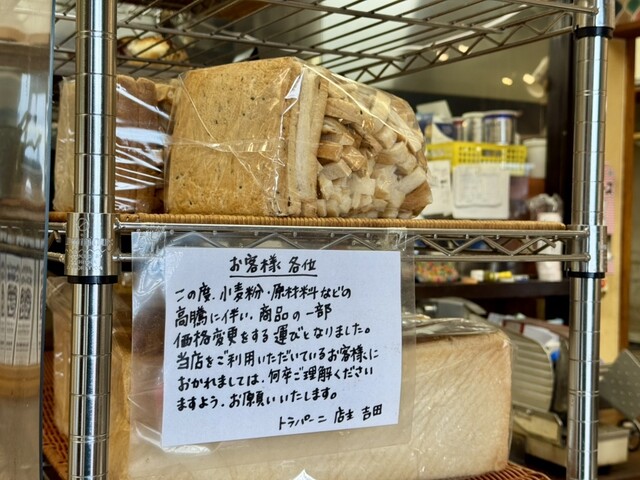 お客様各位
この度、小麦粉・原材料などの
高騰に伴い、商品の一部
価格変更をする運びとなりました。
当店をご利用いただいているお客様に
おかれましては、何卒ご理解ください
ますよう、お願いいたします。
トラパーニ 店主 吉田